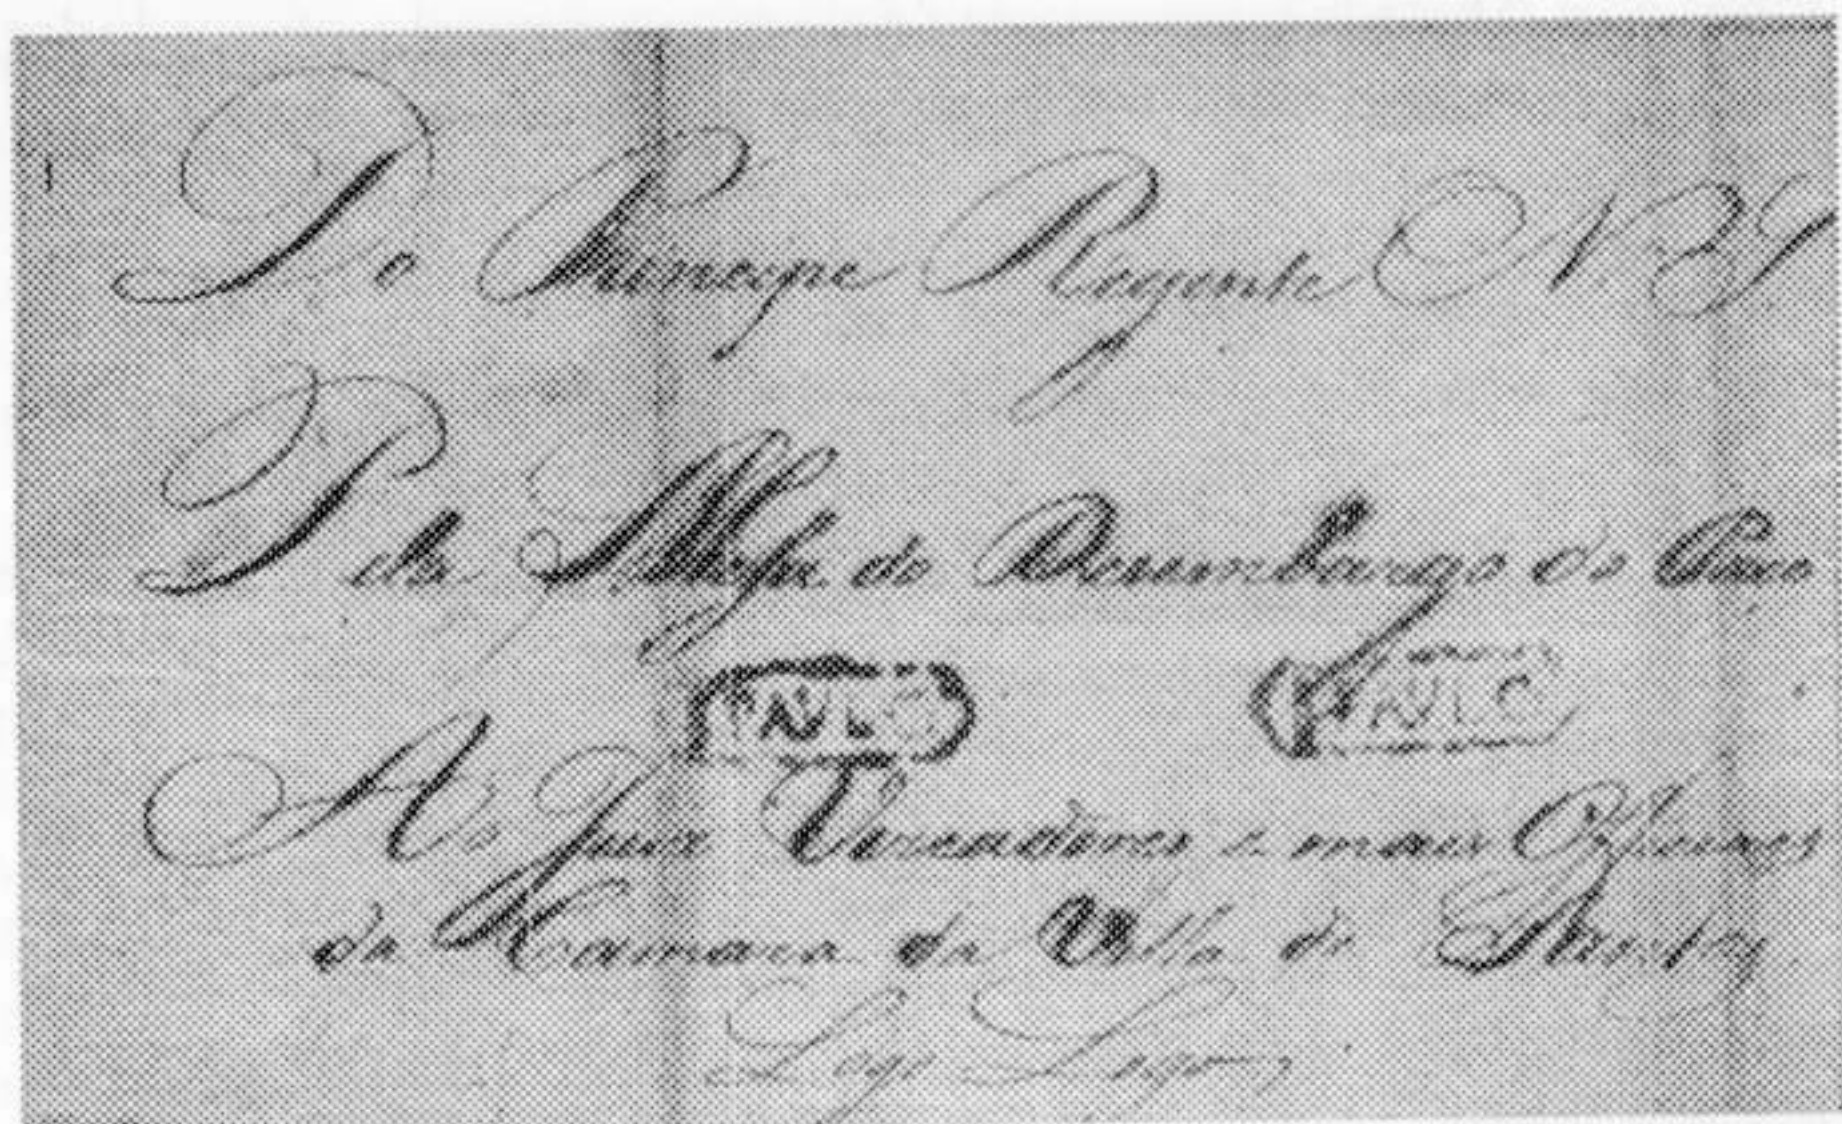 Do Principe Regente N. S.
Pela Meza do Desembargo do Paço
PAULO PAULO
Ao Juiz Vereadores e mais Officiaes
da Camara da Villa de Santos
Logo Logo